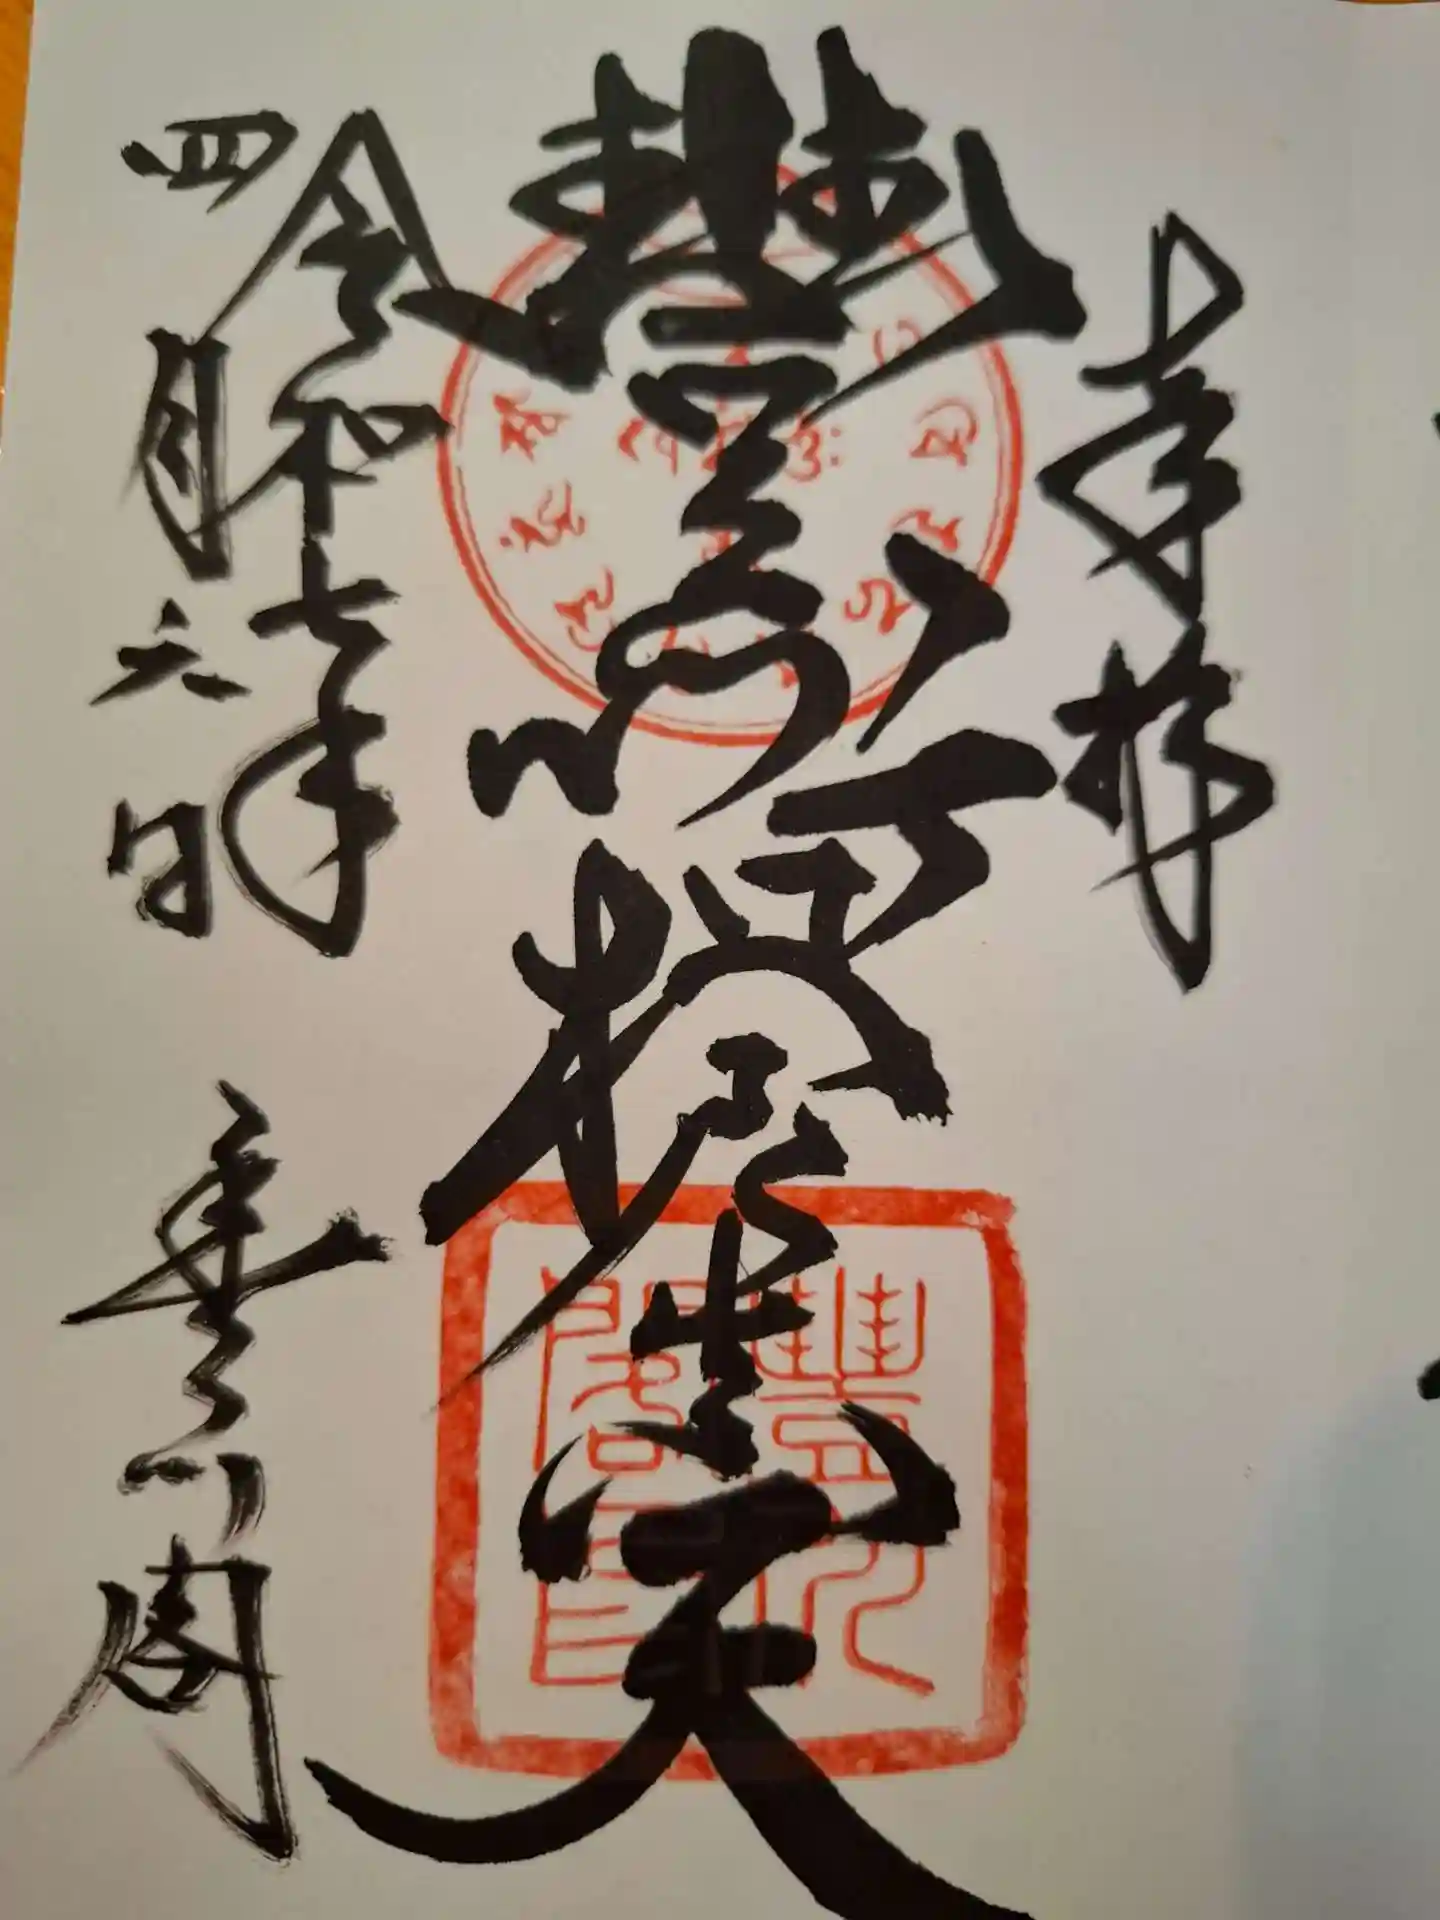 奉拝
豐川吒枳尼眞天
令和七年
四月六日
豐川閣
豐川閣印